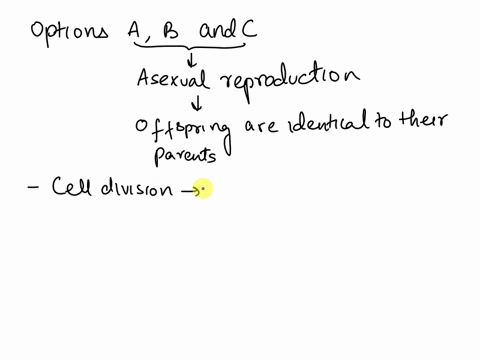 Options A, B and C
↓
Asexual reproduction
↓
Offspring are identical to their
parents
- Cell division →